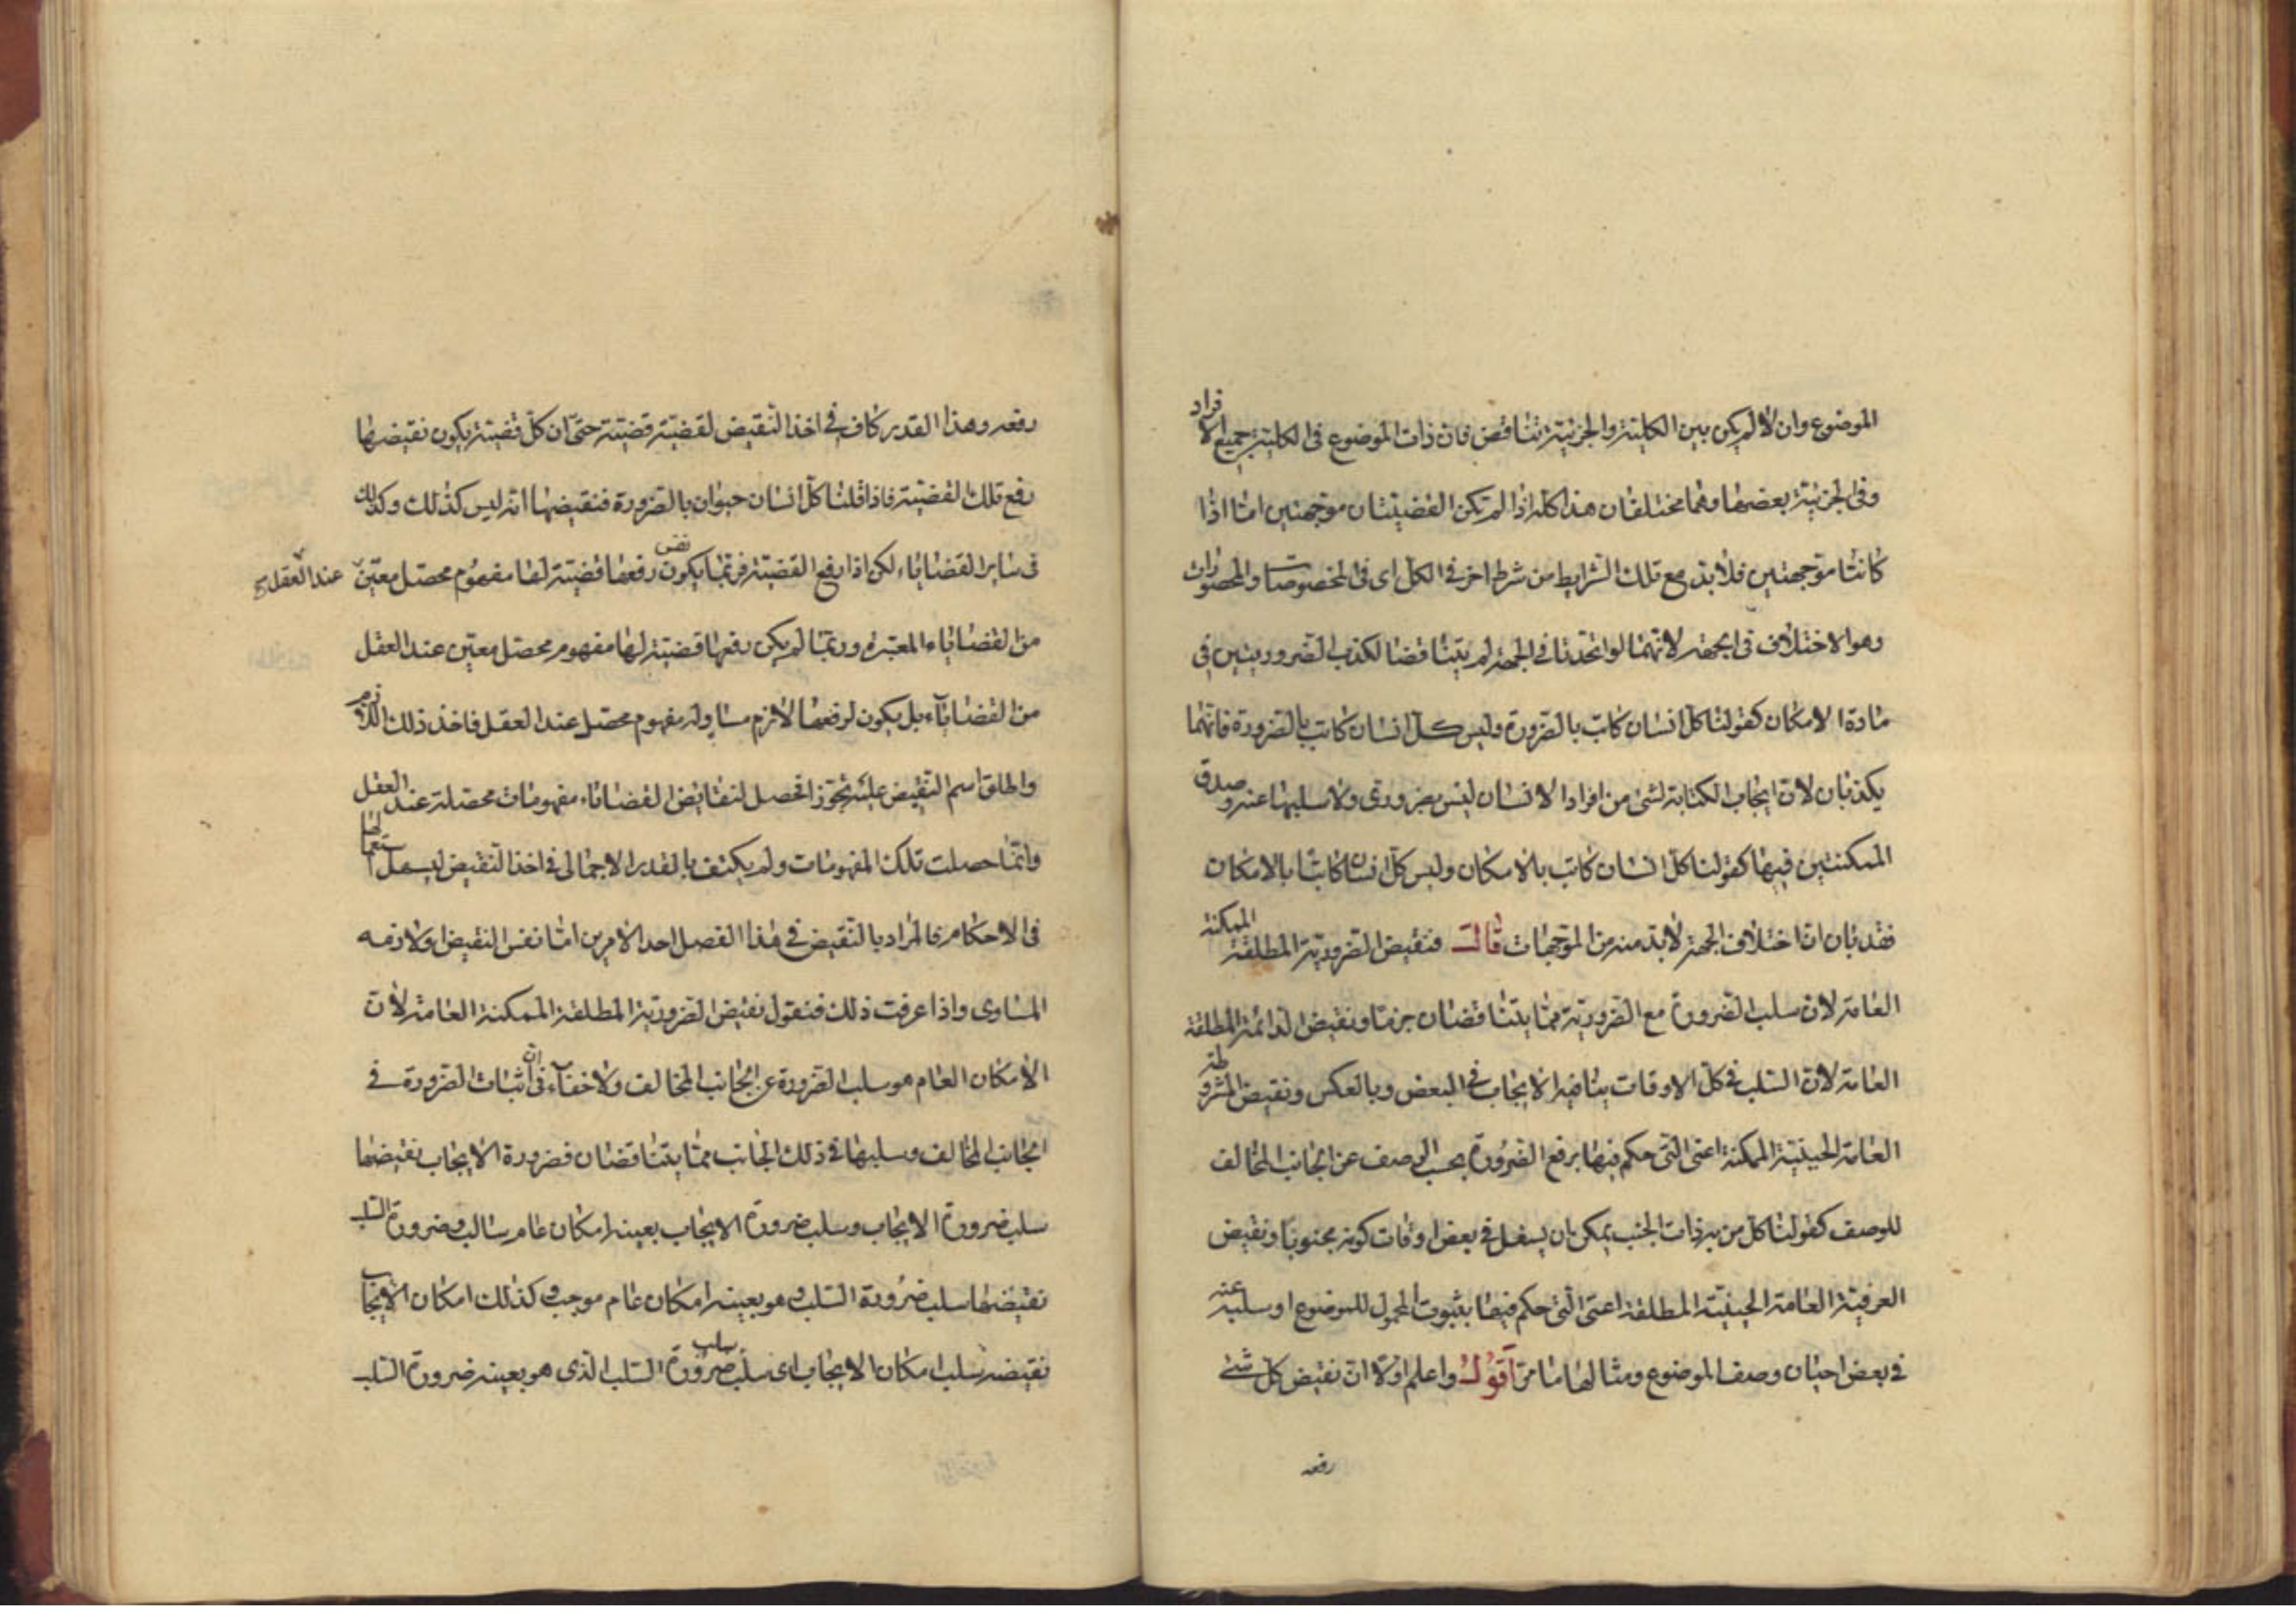 الموضوع وان لا لم يكن بين الكلية والجزئية تناقض فان ذات الموضوع فى الكلية جميع الافراد
وفى الجزئية بعضها وهما مختلفان هذا كله اذا لم تكن القضيتان موجهتين امّا اذا
كانتا موجهتين فلا بد مع تلك الشرايط من شرط اخر فى الكل اى فى المخصوصات والمحصورات
وهو الاختلاف فى الجهة لانهما لو اتحدتا فى الجهة لم يتناقضا لكذب الضروريتين فى
مادة الامكان كقولنا كل انسان كاتب بالضرورة وليس كل انسان كاتب بالضرورة فانهما
يكذبان لانّ ايجاب الكتابة لشئ من افراد الانسان ليس بضرورى ولا سلبها عنه وصدق
الممكنتين فيها كقولنا كل انسان كاتب بالامكان وليس كل انسان كاتبا بالامكان
فقد بان انّ اختلاف الجهة لابد منه من الموجهات قال فنقيض الضرورية المطلقة الممكنة
العامة لان سلب الضرورة مع الضرورية ممّا يتناقضان جزمًا ونقيض الدائمة المطلقة
العامة لانّ السّلب فى كل الاوقات ينافيه الايجاب فى البعض وبالعكس ونقيض المشروطة
العامة الحينية الممكنة اعنى التى حكم فيها برفع الضرورة بحسب الوصف عن الجانب المخالف
للوصف كقولنا كل من به ذات الجنب يمكن ان يسعل فى بعض اوقات كونه مجنوبا ونقيض
العرفية العامة الحينيّة المطلقة اعنى التى حكم فيها بثبوت المحمول للموضوع او سلبه عنه
فى بعض احيان وصف الموضوع ومثالها ما مرّ اقول واعلم اولا ان نقيض كل شئ
رفعه
رفعه وهذا القدر كاف فى اخذ النّقيض لقضية قضيّة حتى ان كل قضية يكون نقيضها
رفع تلك القضيّة فاذا قلنا كلّ انسان حيوان بالضرورة فنقيضها انه ليس كذلك وكذلك
فى ساير القضاياء لكن اذا رفع القضية فربّما يكون نفس رفعها قضية لها مفهوم محصّل معيّن عند العقل
من القضاياء المعتبرة وربّما لم يكن رفعها قضية لها مفهوم محصّل معيّن عند العقل
من القضاياء بل يكون لرفعها لازم مساو له مفهوم محصّل عند العقل فاخذ ذلك اللازم
واطلق اسم النّقيض عليه تجوزا فحصل لنقائض القضاياء مفهومات محصلة عند العقل
وانّما حصلت تلك المفهومات ولم يكتف بالقدر الاجمالى فى اخذ النقيض ليسهل استعمالها
فى الاحكام فالمراد بالنقيض فى هذا الفصل احد الامرين امّا نفس النقيض او لازمه
المساوى واذا عرفت ذلك فنقول نقيض الضرورية المطلقة الممكنة العامة لانّ
الامكان العام هو سلب الضرورة عن الجانب المخالف ولا خفاء فى انّ اثبات الضرورة فى
الجانب المخالف وسلبها فى ذلك الجانب ممّا يتناقضان فضرورة الايجاب نقيضها
سلب ضرورة الايجاب وسلب ضرورة الايجاب بعينه امكان عام سالب وضرورة السلب
نقيضها سلب ضرورة السّلب وهو بعينه امكان عام موجب وكذلك امكان الايجاب
نقيضه سلب امكان الايجاب اى سلب سلب ضرورة السّلب الّذى هو بعينه ضرورة السّلب